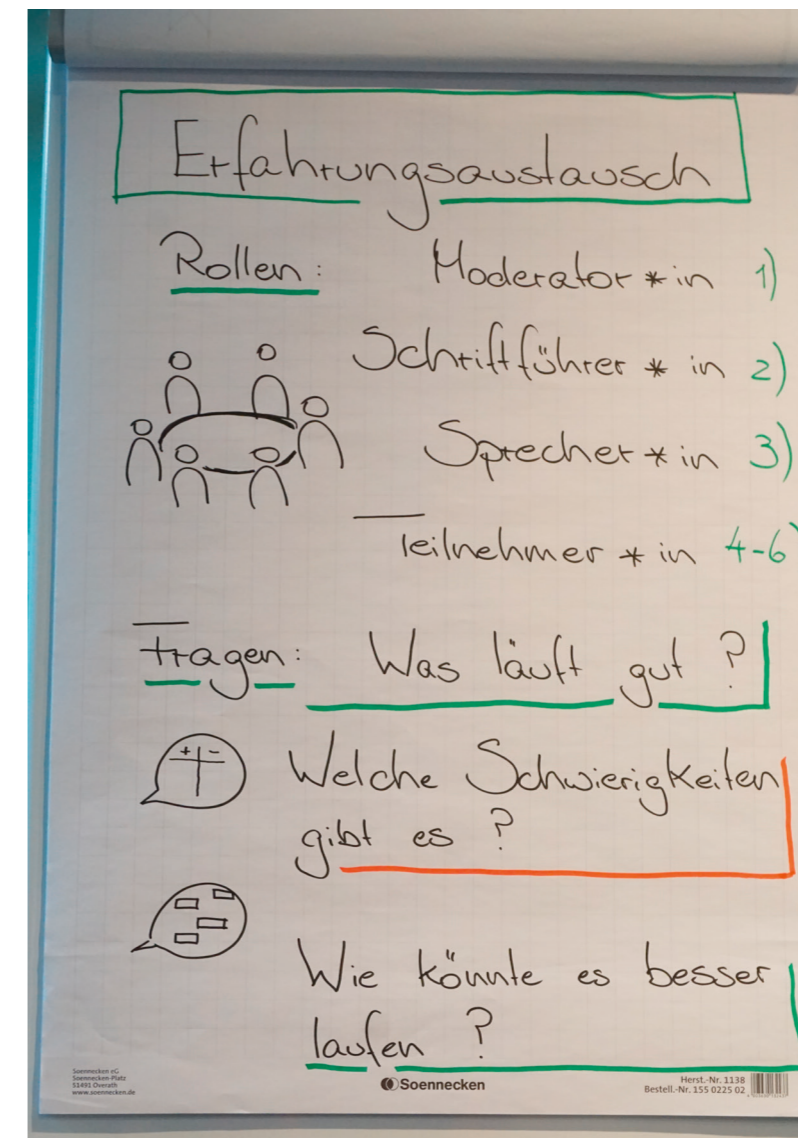 Erfahrungsaustausch
Rollen: Moderator*in 1)
Schriftführer*in 2)
Sprecher*in 3)
Teilnehmer*in 4-6)
Fragen: Was läuft gut?
+ -
Welche Schwierigkeiten
gibt es?
Wie könnte es besser
laufen?
Soennecken eG
Soennecken-Platz
51491 Overath
www.soennecken.de
Soennecken
Herst.-Nr. 1138
Bestell.-Nr. 155 0225 02